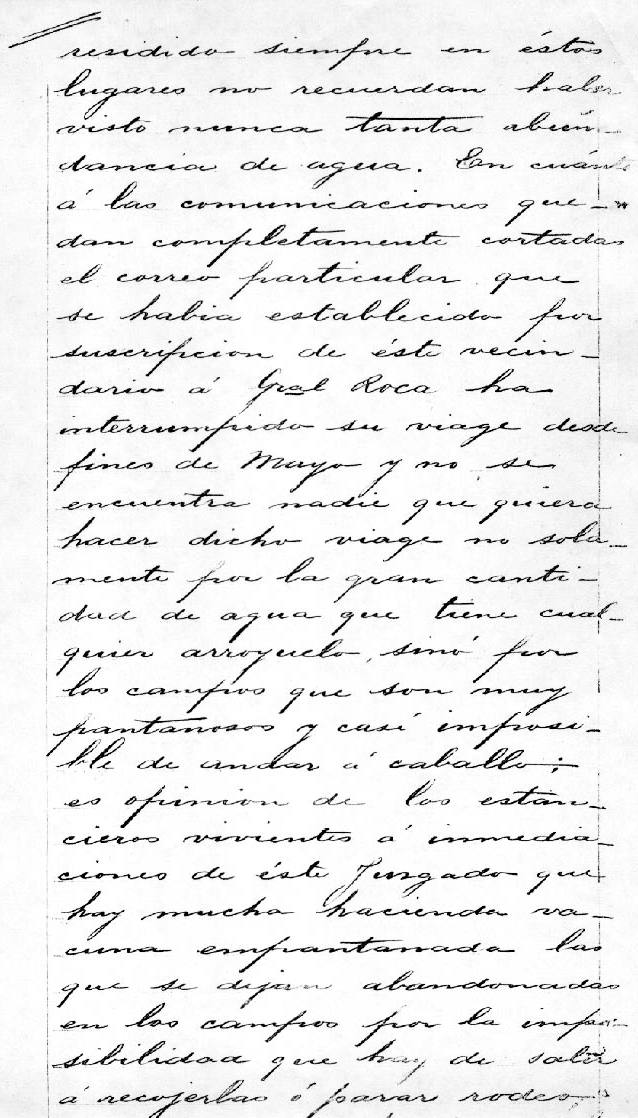 residido siempre en éstos
lugares no recuerdan haber
visto nunca tanta abun-
dancia de agua. En cuánto
á las comunicaciones que-
dan completamente cortadas
el correo particular que
se habia establecido por
suscripcion de éste vecin-
dario á Gral Roca ha
interrumpido su viage desde
fines de Mayo y no se
encuentra nadie que quiera
hacer dicho viage no sola-
mente por la gran canti-
dad de agua que tiene cual-
quier arroyuelo, sinó por
los campos que son muy
pantanosos y casí imposi-
ble de andar á caballo;
es opinion de los estan-
cieros vivientes á inmedia-
ciones de éste Juzgado que
hay mucha hacienda va-
cuna empantanada las
que se dejan abandonadas
en los campos por la impo-
sibilidad que hay de salir
á recojerlas ó parar rodeo,